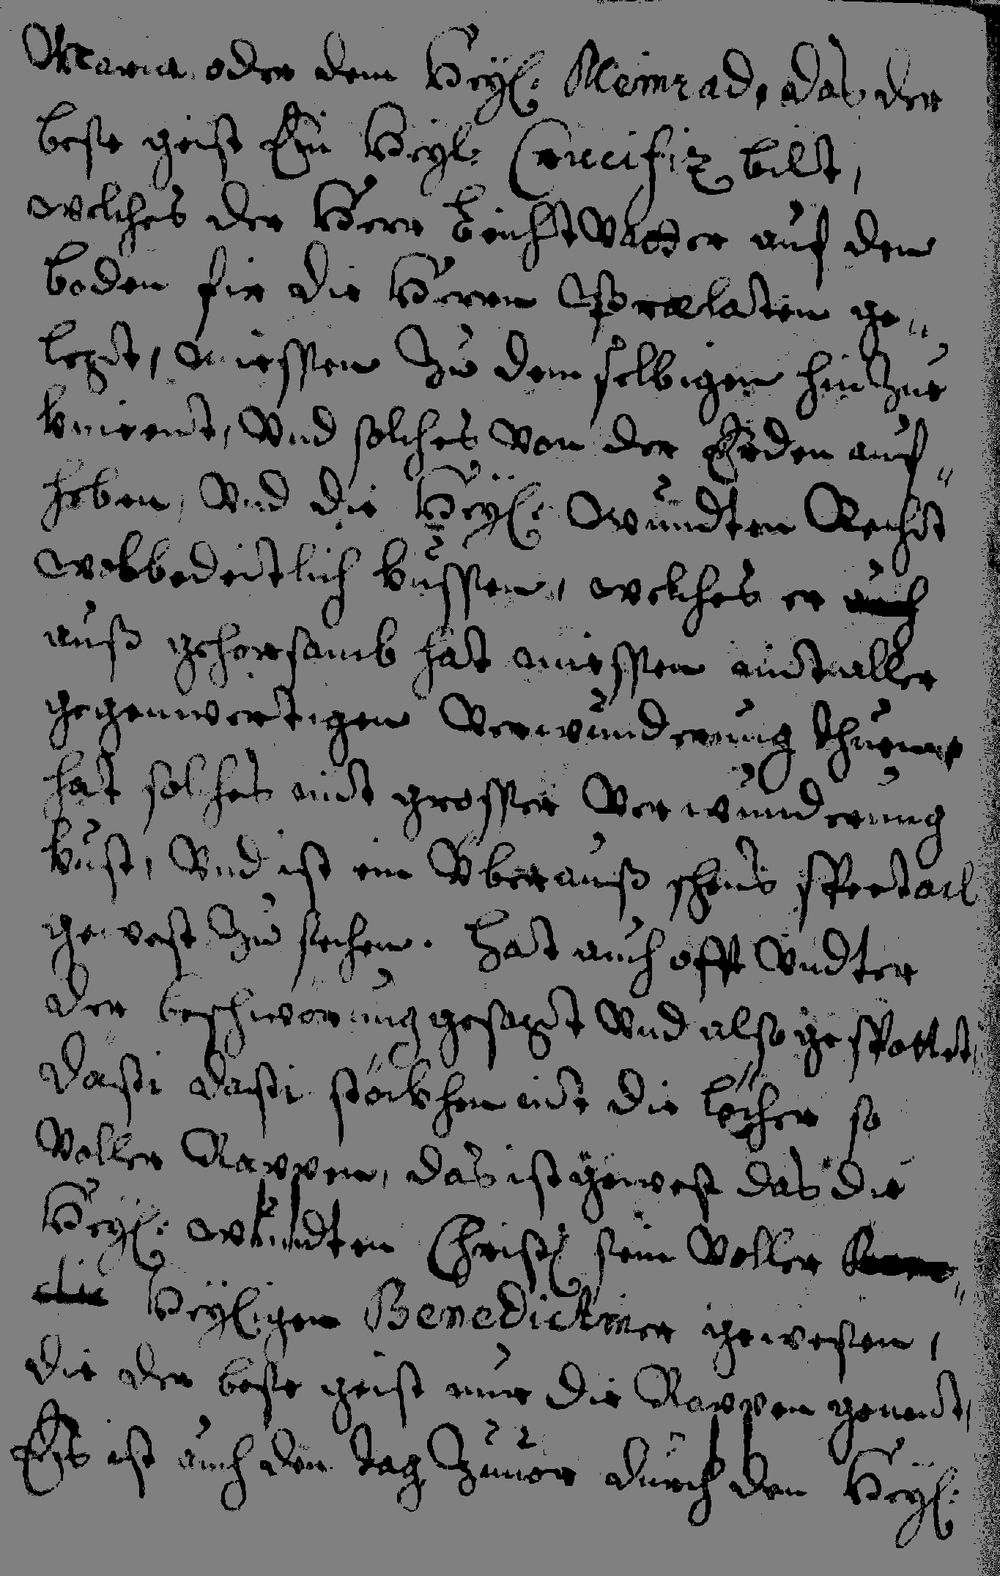 Maria, oder dem Heÿl: Meinrad, das der
beste geist Ein Heÿl: Crucifix bilt,
welches der Herr beicht Vatter auf den
boden fir die Herren Prælaten ge„
legt, miessen zu dem selbigen hin zue
knient, Vnd solches von der Erden auf„
heben, Vnd die Heÿl: Wundten Recht
wolbedeitlich küssen, welches er auch
auß gehorsamb hat miessen mit aller
gegenwertigen Verwunderung thuen
hat solches mit grosser Verwunderung
kust, Vnd ist ein Vberauß schens spectacl
gewest zu sechen. hat auch offt Vndter
der beschwörung gesagt Vnd also gespottet,
dasti dasti stöckhen mit die löcher so
Voller Rappen, das ist gewest das die
Heÿl: wundten Christi sein Voller
die Heÿligen Benedictiner gewesen,
die der beste geist nur die Rappen genent,
Es ist auch den tag zuuor durch den Heÿl: